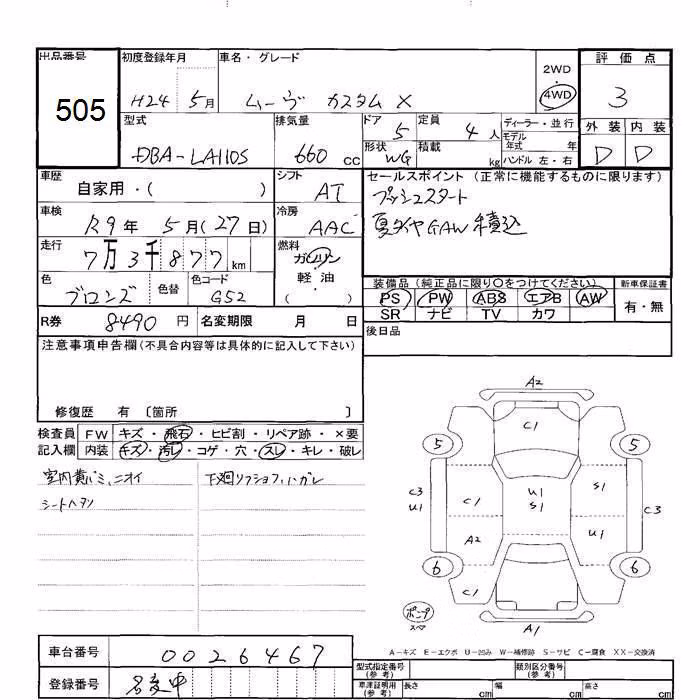 出品番号 初度登録年月 車名・グレード 2WD 評価点
505 H24 5月 ムーヴ カスタム X 4WD 3
型式 排気量 ドア 定員 ディーラー・並行 外装 内装
DBA-LA110S 660 cc 5 4人 モデル年式 年 D D
形状 WG 積載 kg ハンドル 左・右
車歴 シフト セールスポイント (正常に機能するものに限ります)
自家用・( ) AT プッシュスタート
車検 冷房 夏タイヤGAW積込
R9年 5月(27日) AAC
走行 燃料
7万3千877km ガソリン
色 色替 色コード 軽油 装備品(純正品に限り○をつけてください) 新車保証書
ブロンズ G52 ( ・ ) PS PW ABS エアB AW 有・無
SR ナビ TV カワ
R券 8490円 名変期限 月 日 後日品
注意事項申告欄(不具合内容等は具体的に記入して下さい)
修復歴 有 〔箇所 〕
検査員 FW キズ・飛石・ヒビ割・リペア跡・×要
記入欄 内装 キズ・汚レ・コゲ・穴・スレ・キレ・破レ
室内黄バミ、ニオイ 下廻リ
シートヘタリ
A2
C1
5 5
C3 U1 C1 U1 S1 S1 C3
A2 U1
6 6
C1
ポンプ
スペア
A1
A-キズ E-エクボ U-凹み W-補修跡 S-サビ C-腐食 XX-交換済
車台番号 0026467 型式指定番号(参考) 類別区分番号(参考)
登録番号 名変中 車庫証明用(参考) 長さ cm 幅 cm 高さ cm